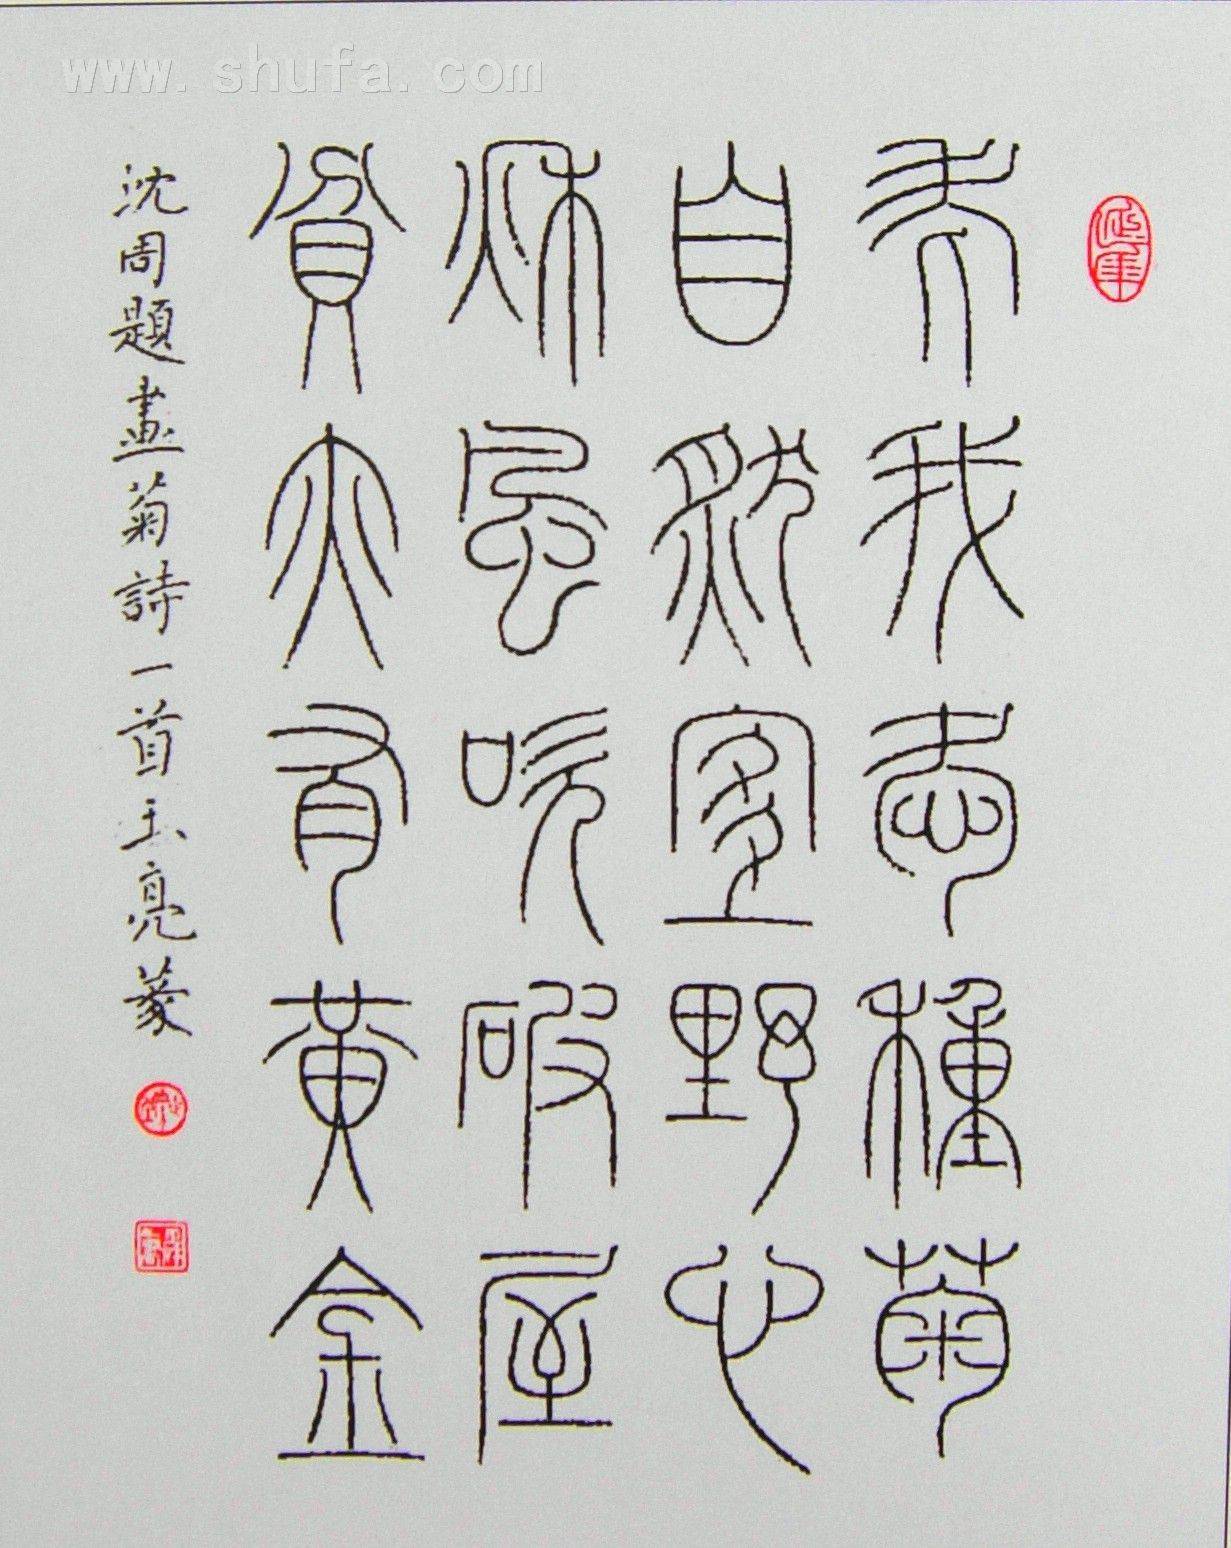 www.shufa.com
延年
老我愛種菊
自然宜野心
秋風吹破屋
貧亦有黃金
沈周題畫菊詩一首玉亮篆